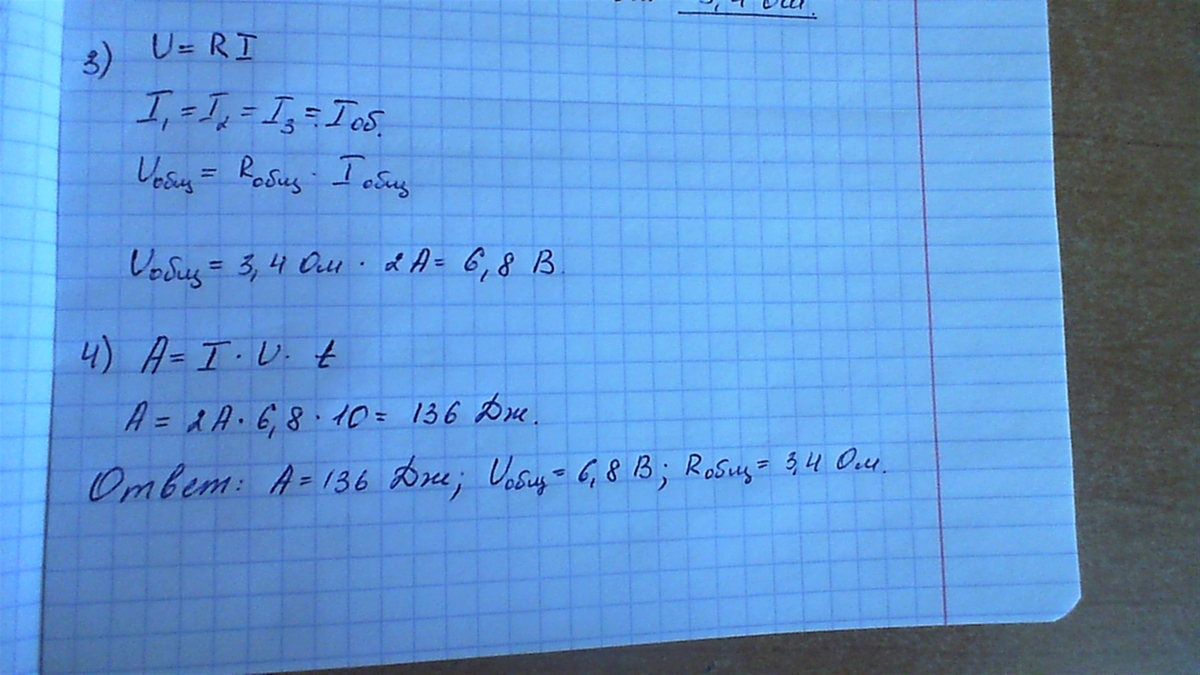 3,4 Ом.
3) U = R I
I₁ = I₂ = I₃ = Iоб.
Uобщ = Rобщ · Iобщ
Uобщ = 3,4 Ом · 2А = 6,8 В.
4) A = I · U · t
A = 2А · 6,8 · 10 = 136 Дж.
Ответ: A = 136 Дж; Uобщ = 6,8 В; Rобщ = 3,4 Ом.